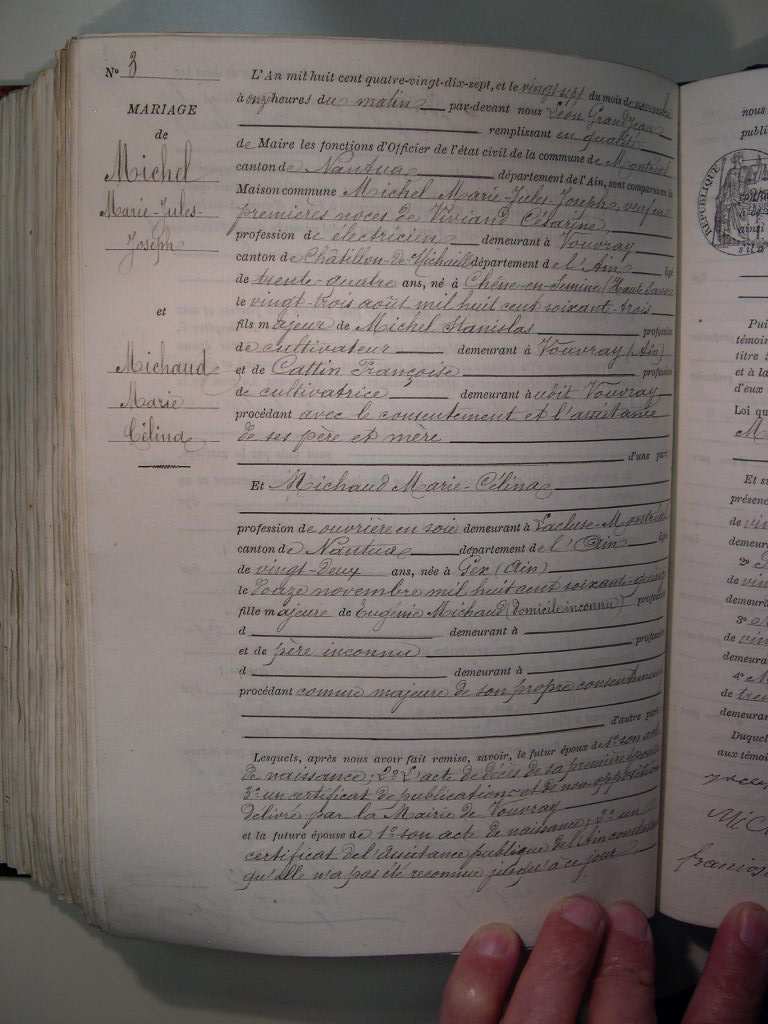 N° 3
MARIAGE
de
Michel
Marie-Jules-
Joseph
et
Michaud
Marie
Célina
L'An mil huit cent quatre-vingt-dix-sept, et le vingt sept du mois de novembre
à onze heures du matin par-devant nous Léon Grandjean
remplissant en qualité
de Maire les fonctions d'Officier de l'état civil de la commune de Montréal
canton de Nantua département de l'Ain, sont comparus en la
Maison commune Michel Marie-Jules-Joseph, veuf en
premières noces de Viviand Césarine
profession de électricien demeurant à Vouvray
canton de Châtillon-de-Michaille département de l'Ain âgé
de trente-quatre ans, né à Chêne-en-Semine (Haute Savoie
le vingt-trois août mil huit cent soixant-trois
fils majeur de Michel Stanislas profession
de cultivateur demeurant à Vouvray (Ain)
et de Cattin Françoise profession
de cultivatrice demeurant à Vouvray
procédant avec le consentement et l'assistance
de ses père et mère
d'une part
Et Michaud Marie-Célina
profession de ouvrière en soie demeurant à Lacluse-Montréal
canton de Nantua département de l'Ain âgée
de vingt-deux ans, née à Gex (Ain)
le douze novembre mil huit cent soixante-quinze
fille majeure de Eugénie Michaud (domicile inconnu) profession
d demeurant à
et de père inconnu profession
d demeurant à
procédant comme majeure de son propre consentement
d'autre part
Lesquels, après nous avoir fait remise, savoir, le futur époux de 1° son acte
de naissance; 2° L'acte de décès de sa première épouse
3° un certificat de publication et de non opposition
délivré par la Mairie de Vouvray
et la future épouse de 1° son acte de naissance; 2° un
certificat de l'Assistance publique de l'Ain constatant
qu'elle n'a pas été reconnue jusqu'à ce jour
nous
publi
RÉPUBLIQUE
ainsi
s'il a
Puis
témoin
titre
et à la
d'eux
Loi qu
Et su
présence
de vin
demeura
2°
de vin
demeura
3°
de vin
demeura
4°
de tren
demeurant
Duquel
aux témoi
Mich